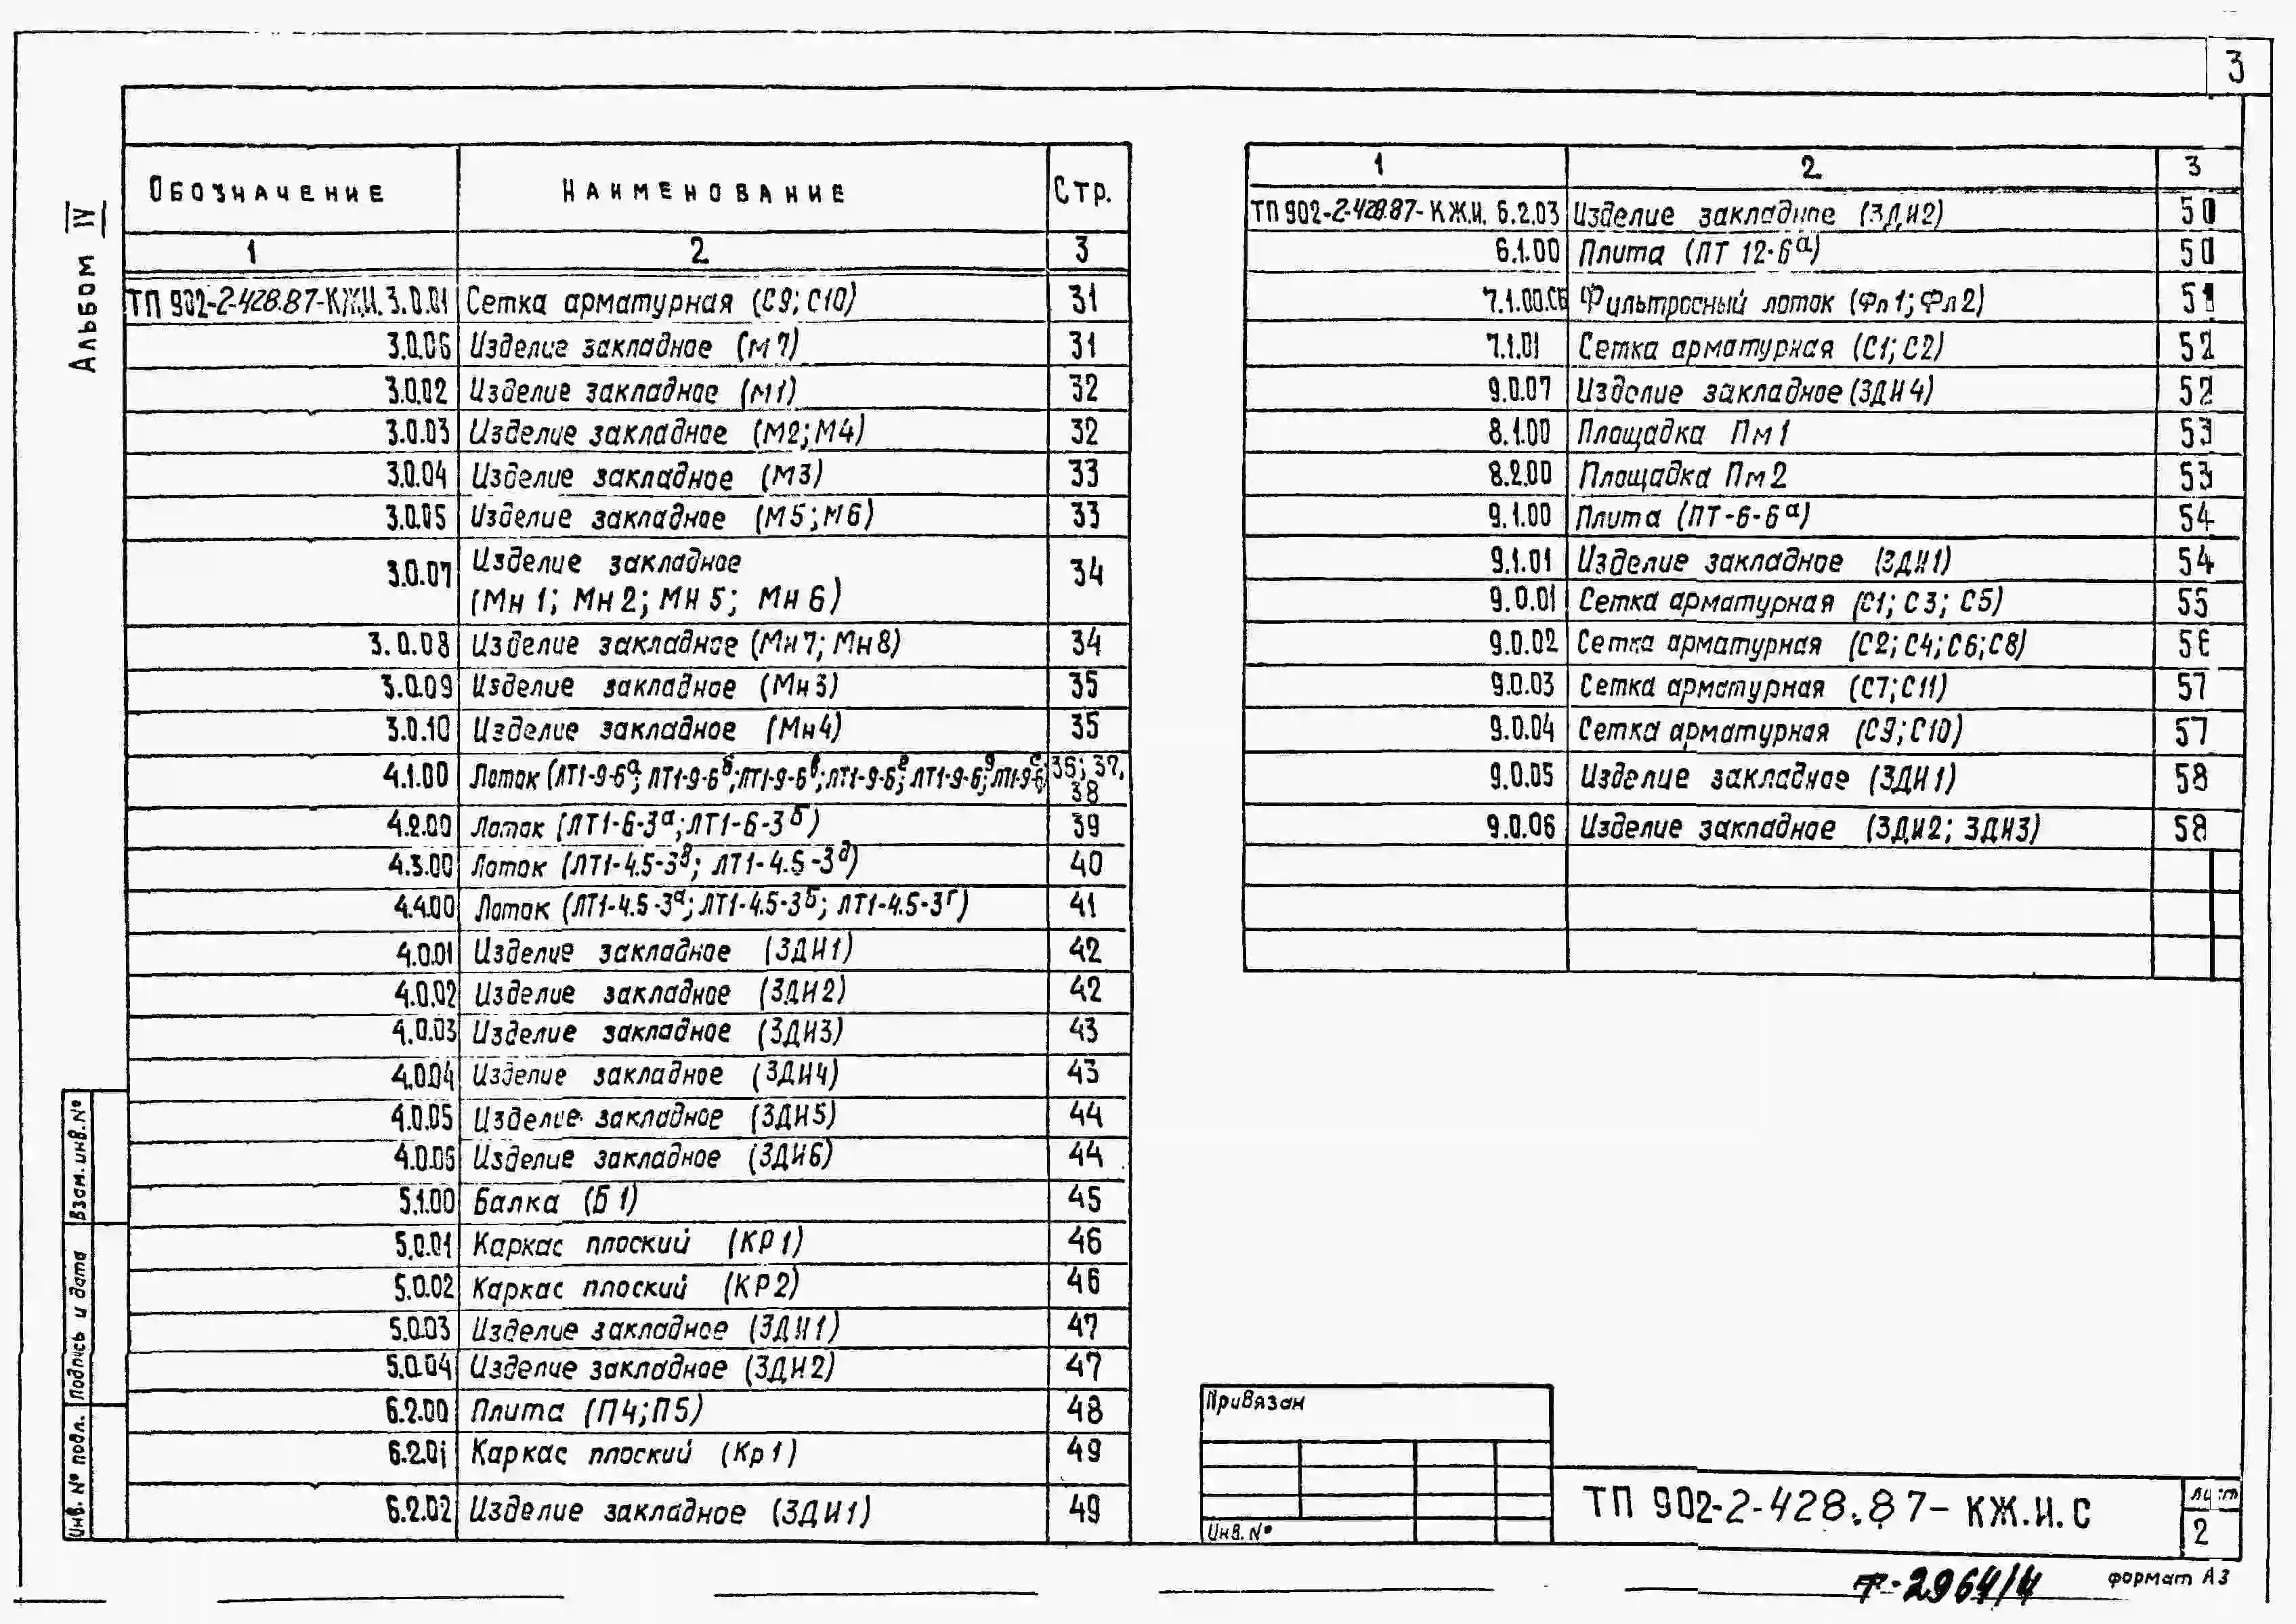 3
Альбом IV
Обозначение Наименование Стр.
1 2 3
ТП 902-2-428.87-КЖ.И. 3.0.01 Сетка арматурная (С9; С10) 31
3.0.06 Изделие закладное (М7) 31
3.0.02 Изделие закладное (М1) 32
3.0.03 Изделие закладное (М2; М4) 32
3.0.04 Изделие закладное (М3) 33
3.0.05 Изделие закладное (М5; М6) 33
3.0.07 Изделие закладное
(Мн 1; Мн 2; Мн 5; Мн 6) 34
3.0.08 Изделие закладное (Мн 7; Мн 8) 34
3.0.09 Изделие закладное (Мн 3) 35
3.0.10 Изделие закладное (Мн 4) 35
4.1.00 Лоток (ЛТ1-9-6а; ЛТ1-9-6б; ЛТ1-9-6в; ЛТ1-9-6г; ЛТ1-9-6д; ЛТ1-9-6е) 36; 37,
38
4.2.00 Лоток (ЛТ1-6-3а; ЛТ1-6-3б) 39
4.3.00 Лоток (ЛТ1-4.5-3в; ЛТ1-4.5-3д) 40
4.4.00 Лоток (ЛТ1-4.5-3а; ЛТ1-4.5-3б; ЛТ1-4.5-3г) 41
4.0.01 Изделие закладное (ЗДИ1) 42
4.0.02 Изделие закладное (ЗДИ2) 42
4.0.03 Изделие закладное (ЗДИ3) 43
4.0.04 Изделие закладное (ЗДИ4) 43
4.0.05 Изделие закладное (ЗДИ5) 44
4.0.06 Изделие закладное (ЗДИ6) 44
5.1.00 Балка (Б 1) 45
5.0.01 Каркас плоский (КР 1) 46
5.0.02 Каркас плоский (КР 2) 46
5.0.03 Изделие закладное (ЗДИ1) 47
5.0.04 Изделие закладное (ЗДИ2) 47
6.2.00 Плита (П4; П5) 48
6.2.01 Каркас плоский (Кр 1) 49
6.2.02 Изделие закладное (ЗДИ1) 49
1 2 3
ТП 902-2-428.87-КЖ.И. 6.2.03 Изделие закладное (ЗДИ2) 50
6.1.00 Плита (ПТ 12-6а) 50
7.1.00.СБ Фильтросный лоток (Фл 1; Фл 2) 51
7.1.01 Сетка арматурная (С1; С2) 52
9.0.07 Изделие закладное (ЗДИ4) 52
8.1.00 Площадка Пм 1 53
8.2.00 Площадка Пм 2 53
9.1.00 Плита (ПТ-6-6а) 54
9.1.01 Изделие закладное (ЗДИ1) 54
9.0.01 Сетка арматурная (С1; С3; С5) 55
9.0.02 Сетка арматурная (С2; С4; С6; С8) 56
9.0.03 Сетка арматурная (С7; С11) 57
9.0.04 Сетка арматурная (С9; С10) 57
9.0.05 Изделие закладное (ЗДИ1) 58
9.0.06 Изделие закладное (ЗДИ2; ЗДИ3) 58
Взам. инв. №
Подпись и дата
Инв. № подл.
Привязан
Инв. №
ТП 902-2-428.87-КЖ.И.С
лист
2
Т-2964/4
формат А3